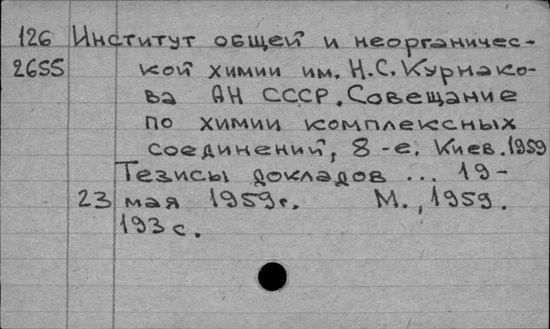 126 Институт общей и неорганичес-
2655 кой химии им. Н.С. Курнако-
ва АН СССР. Совещание
по химии комплексных
соединений, 8-е. Киев. 1959
Тезисы докладов ... 19-
23 мая 1959г. М., 1959.
193 с.